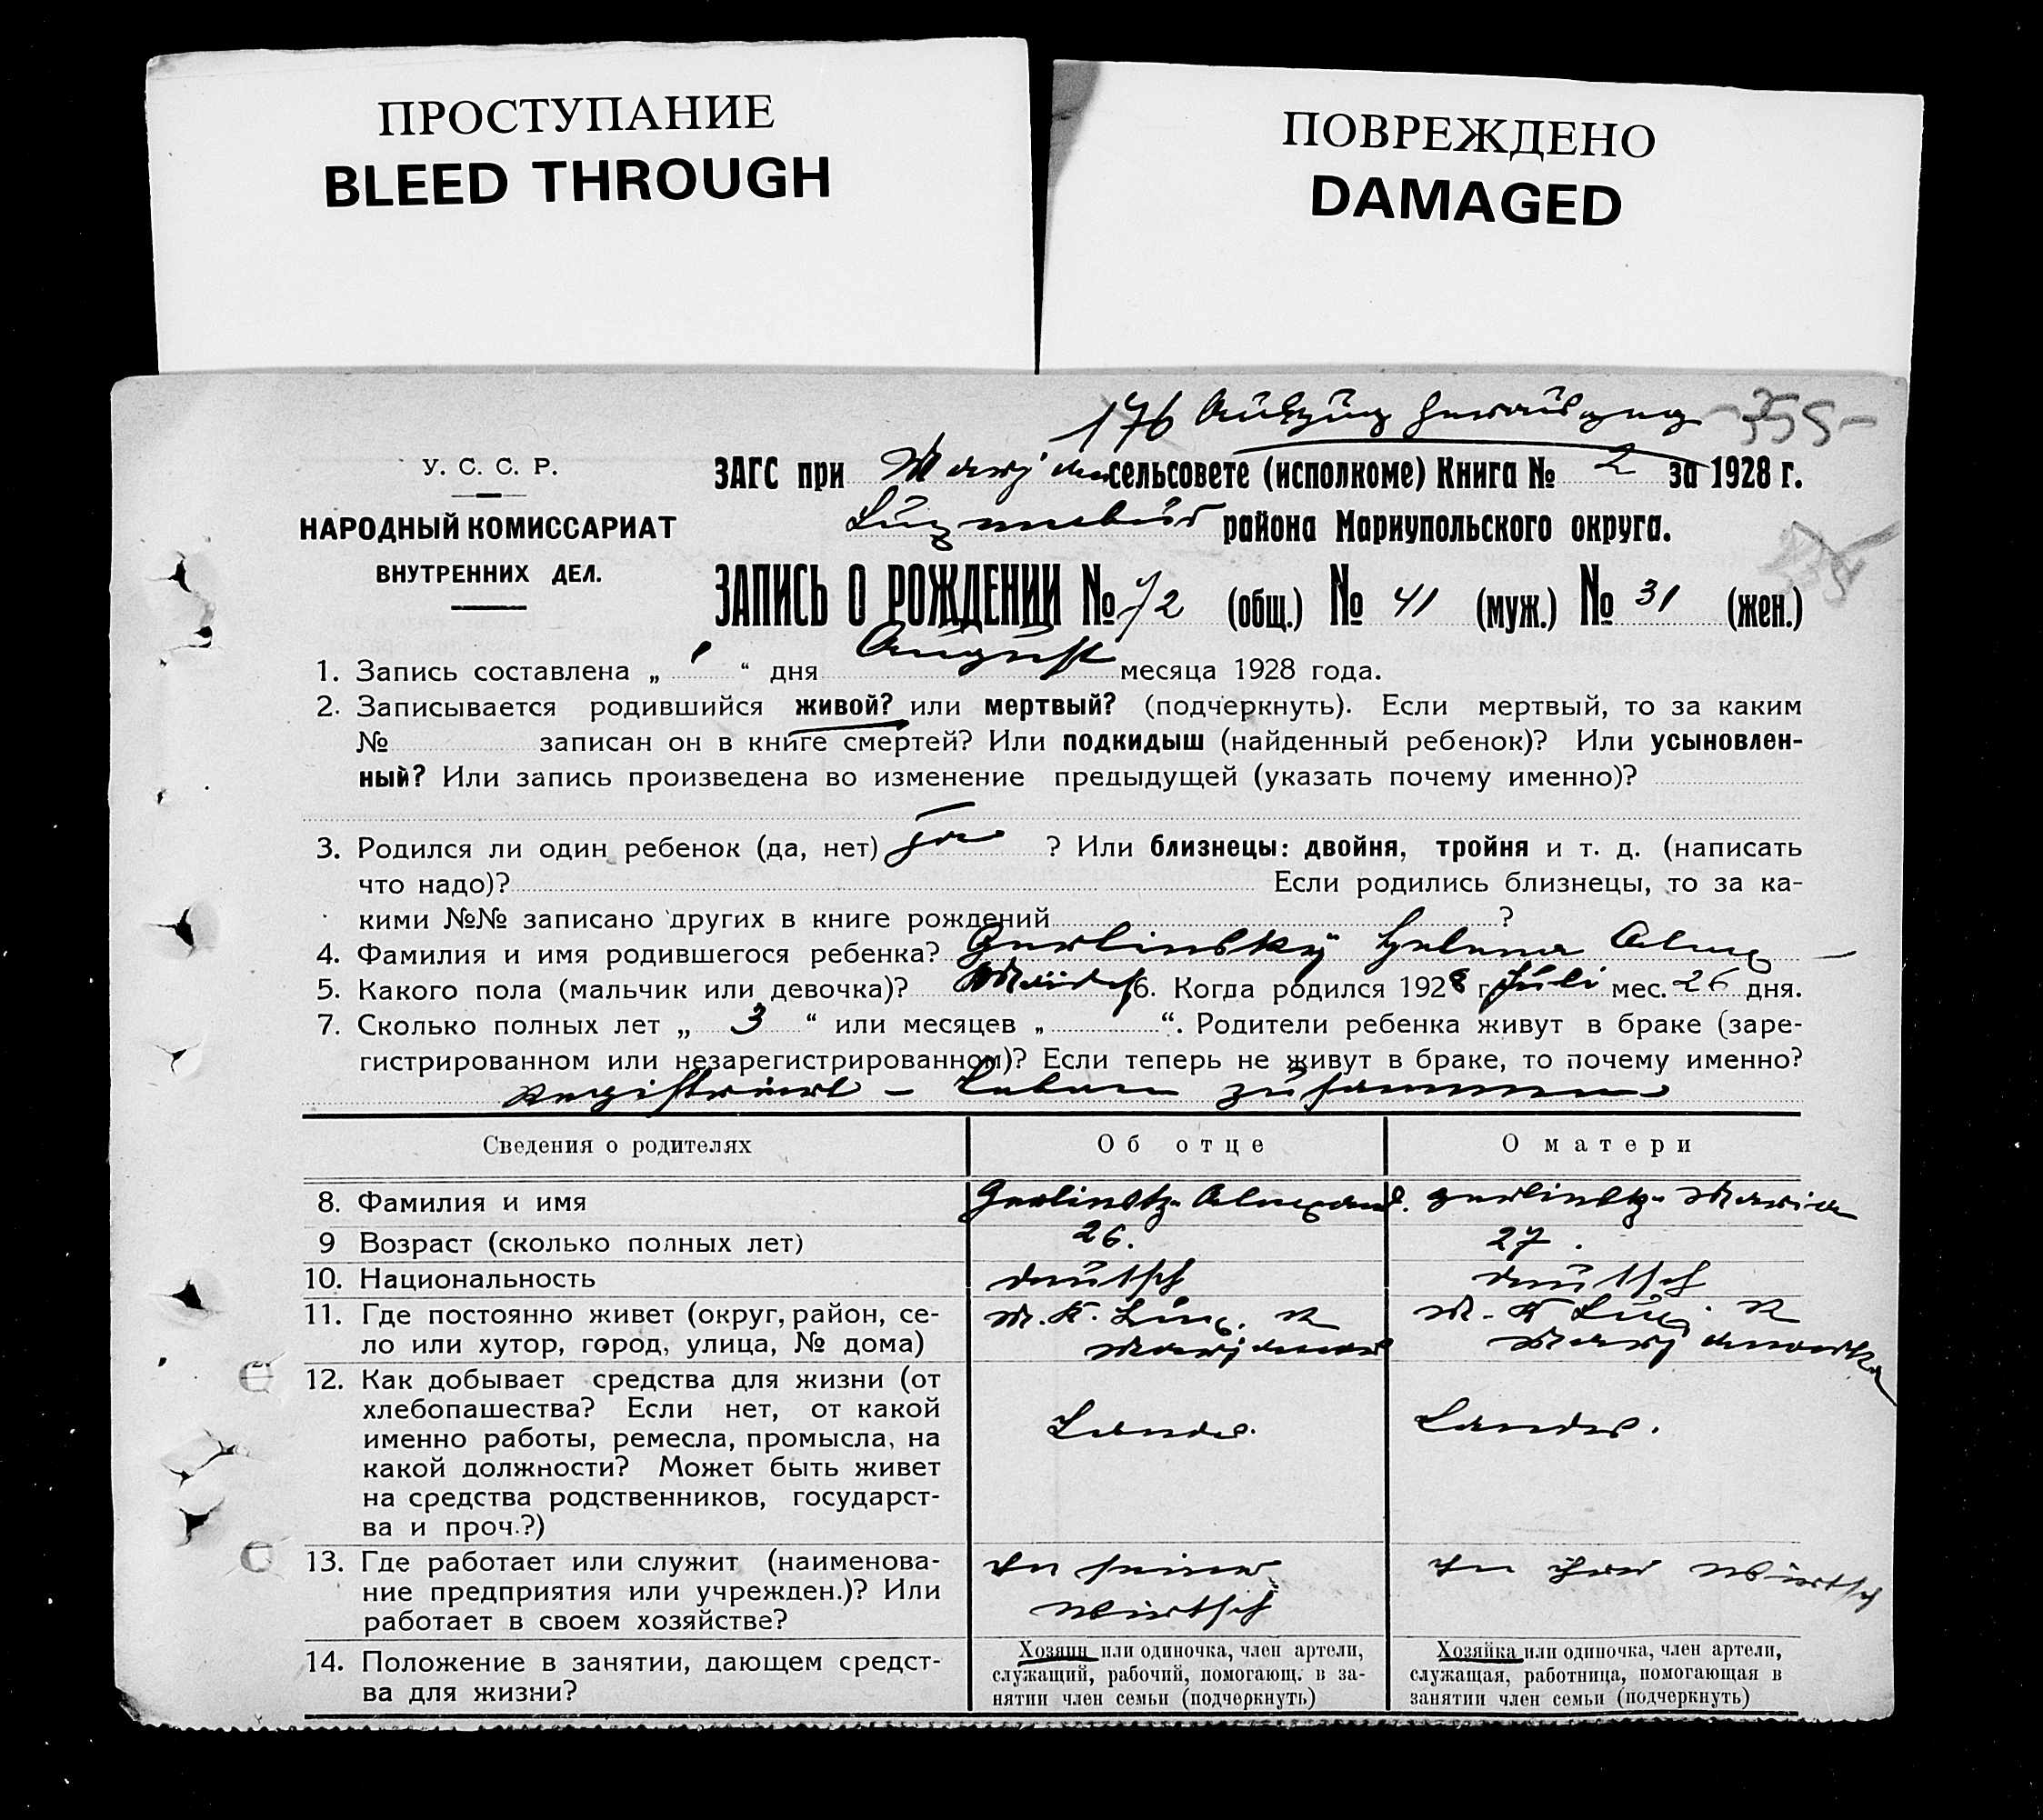 ПРОСТУПАНИЕ
BLEED THROUGH
ПОВРЕЖДЕНО
DAMAGED
176 Auszug -355-
У. С. С. Р.
НАРОДНЫЙ КОМИССАРИАТ
ВНУТРЕННИХ ДЕЛ.
ЗАГС при сельсовете (исполкоме) Книга № 2 за 1928 г.
района Мариупольского округа.
ЗАПИСЬ О РОЖДЕНИИ № 72 (общ.) № 41 (муж.) № 31 (жен.)
1. Запись составлена „ “ дня August месяца 1928 года.
2. Записывается родившийся живой? или мертвый? (подчеркнуть). Если мертвый, то за каким
№ записан он в книге смертей? Или подкидыш (найденный ребенок)? Или усыновлен-
ный? Или запись произведена во изменение предыдущей (указать почему именно)?
3. Родился ли один ребенок (да, нет) ja ? Или близнецы: двойня, тройня и т. д. (написать
что надо)? Если родились близнецы, то за ка-
кими №№ записано других в книге рождений ?
4. Фамилия и имя родившегося ребенка? Gerlinsky Helena Alex
5. Какого пола (мальчик или девочка)? Mädch 6. Когда родился 1928 г. Juli мес. 26 дня.
7. Сколько полных лет „ 3 “ или месяцев „ “. Родители ребенка живут в браке (заре-
гистрированном или незарегистрированном)? Если теперь не живут в браке, то почему именно?
Registriert - Leben zusammen
Сведения о родителях
Об отце
О матери
8. Фамилия и имя
Gerlinsk. Alexand.
Gerlinsk. Maria
9 Возраст (сколько полных лет)
26.
27.
10. Национальность
deutsch
deutsch
11. Где постоянно живет (округ, район, се-
ло или хутор, город, улица, № дома)
M. K. Lux. R
M. K Lux. R
Marjanowka
12. Как добывает средства для жизни (от
хлебопашества? Если нет, от какой
именно работы, ремесла, промысла, на
какой должности? Может быть живет
на средства родственников, государст-
ва и проч.?)
Landw.
Landw.
13. Где работает или служит (наименова-
ние предприятия или учрежден.)? Или
работает в своем хозяйстве?
In seiner
Wirtsch
In ihrer Wirtsch
14. Положение в занятии, дающем средст-
ва для жизни?
Хозяин или одиночка, член артели,
служащий, рабочий, помогающ. в за-
нятии член семьи (подчеркнуть)
Хозяйка или одиночка, член артели,
служащая, работница, помогающая в
занятии член семьи (подчеркнуть)